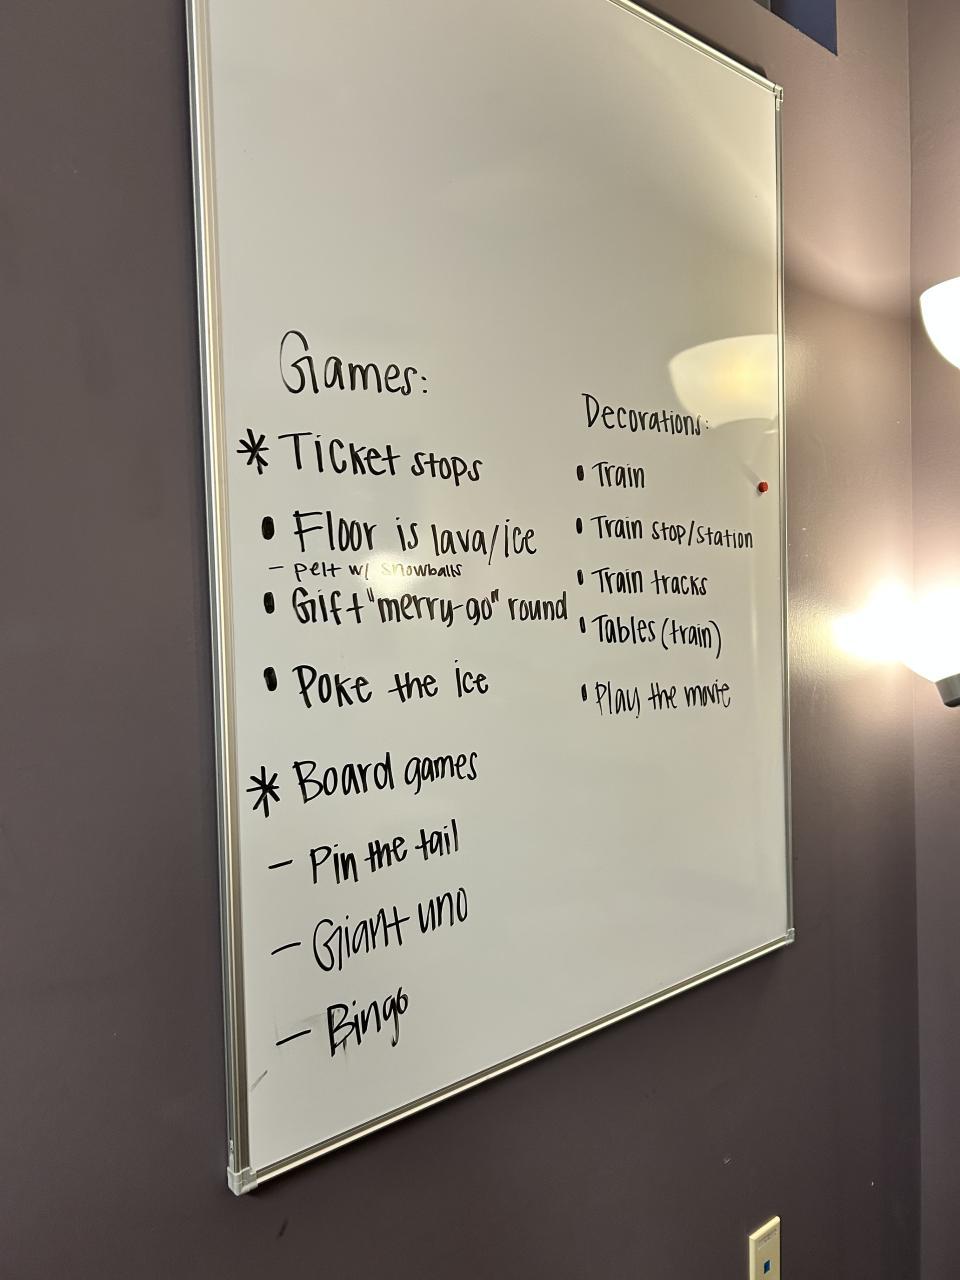 Games:
* Ticket stops
• Floor is lava/ice
- pelt w/ snowballs
• Gift "merry-go" round
• Poke the ice
* Board games
- Pin the tail
- Giant uno
- Bingo
Decorations:
• Train
• Train stop/station
• Train tracks
• Tables (train)
• Play the movie